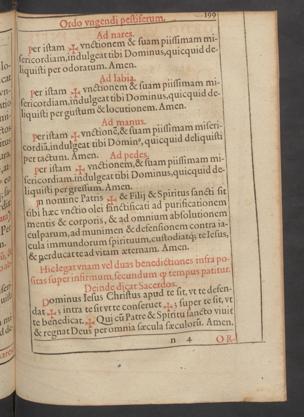 Ordo vngendi pestiferum. 199
Ad nares.
Per istam ✠ vnctionem & suam piissimam mi-
sericordiam, indulgeat tibi Dominus, quicquid de-
liquisti per odoratum. Amen.
Ad labia.
Per istam ✠ vnctionem & suam piissimam mi-
sericordiam, indulgeat tibi Dominus, quicquid de-
liquisti per gustum & locutionem. Amen.
Ad manus.
Per istam ✠ vnctionē, & suam piissimam miseri-
cordiā, indulgeat tibi Dominꝰ, quicquid deliquisti
per tactum. Amen. Ad pedes.
Per istam ✠ vnctionem, & suam piissimam mi-
sericordiam, indulgeat tibi Dominus, quicquid de-
liquisti per gressum. Amen.
In nomine Patris ✠ & Filij & Spiritus sancti sit
tibi hæc vnctio olei sanctificati ad purificationem
mentis & corporis, & ad omnium absolutionem
culparum, ad munimen & defensionem contra ia-
cula immundorum spirituum, custodiatq; te Iesus,
& perducat te ad vitam æternam. Amen.
Hic legat vnam vel duas benedictiones infra po-
sitas super infirmum, secundum qꝫ tempus patitur.
Deinde dicat Sacerdos.
Dominus Iesus Christus apud te sit, vt te defen-
dat ✠; intra te sit vt te conseruet ✠; super te sit, vt
te benedicat. ✠ Qui cū Patre & Spiritu sancto viuit
& regnat Deus per omnia sæcula sæculorū. Amen.
n 4 OR-